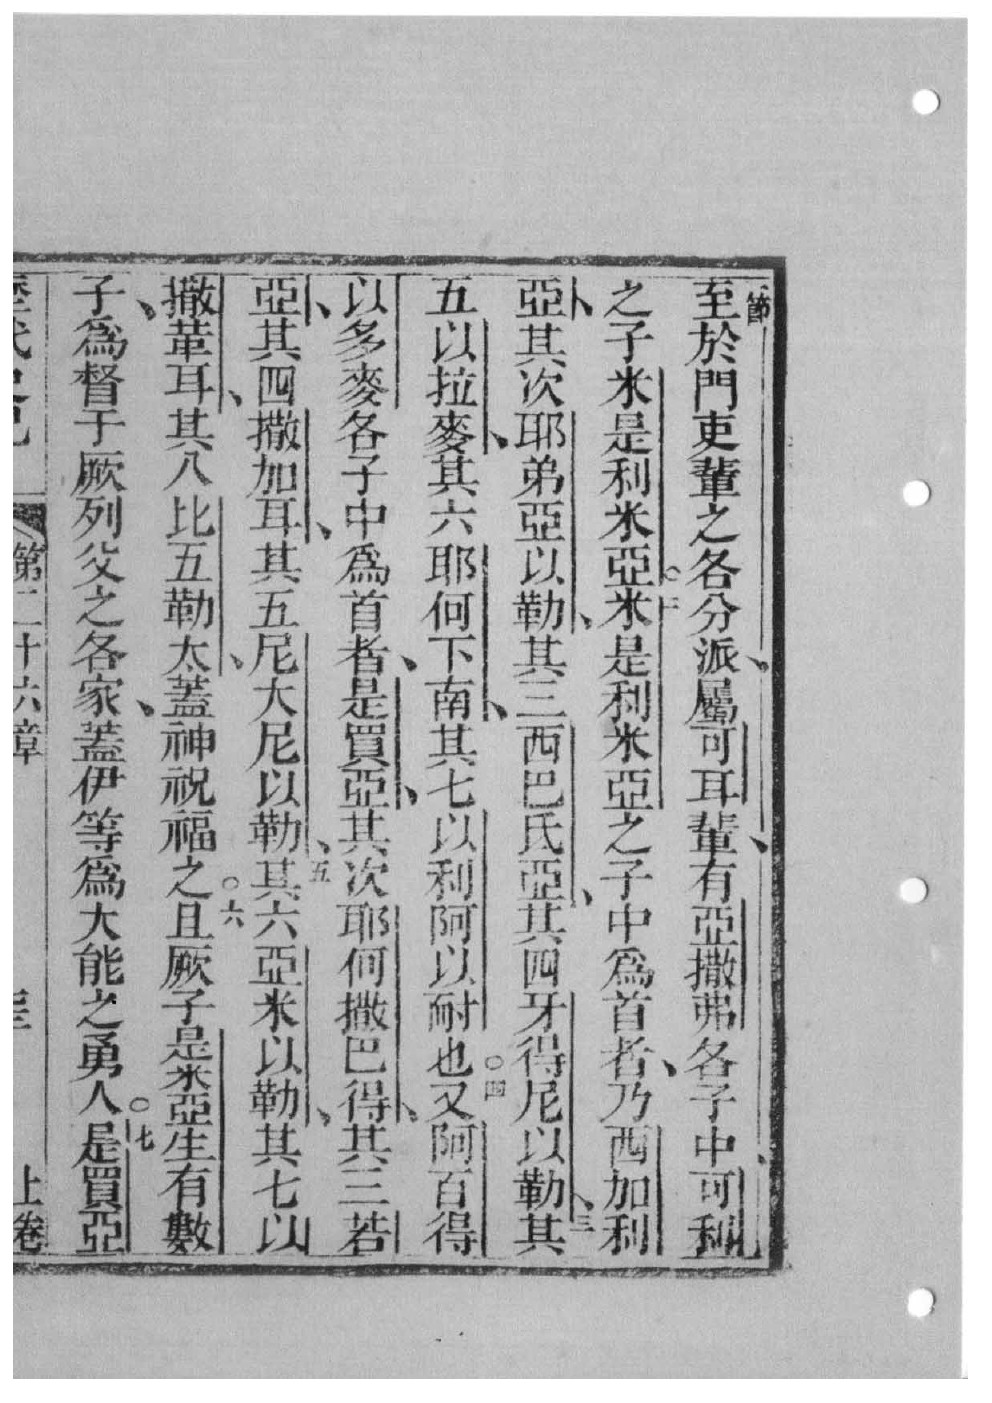 節
至於門吏輩之各分派、屬可耳輩、有亞撒弗各子中、可利
之子米是利米亞○二米是利米亞之子中爲首者、乃西加利
亞、其次耶弟亞以勒、其三西巴氏亞、其四牙得尼以勒、三其
五以拉麥、其六耶何下南、其七以利阿以耐也○四又阿百得
以多麥各子中爲首者、是買亞、其次耶何撒巴得、其三若
亞、其四撒加耳、其五尼大尼以勒、五其六亞米以勒、其七以
撒輩耳、其八比五勒太、蓋神祝福之○六且厥子是米亞生有數
子、爲督于厥列父之各家、蓋伊等爲大能之勇人○七是買亞
歷代史記 第二十六章 上卷